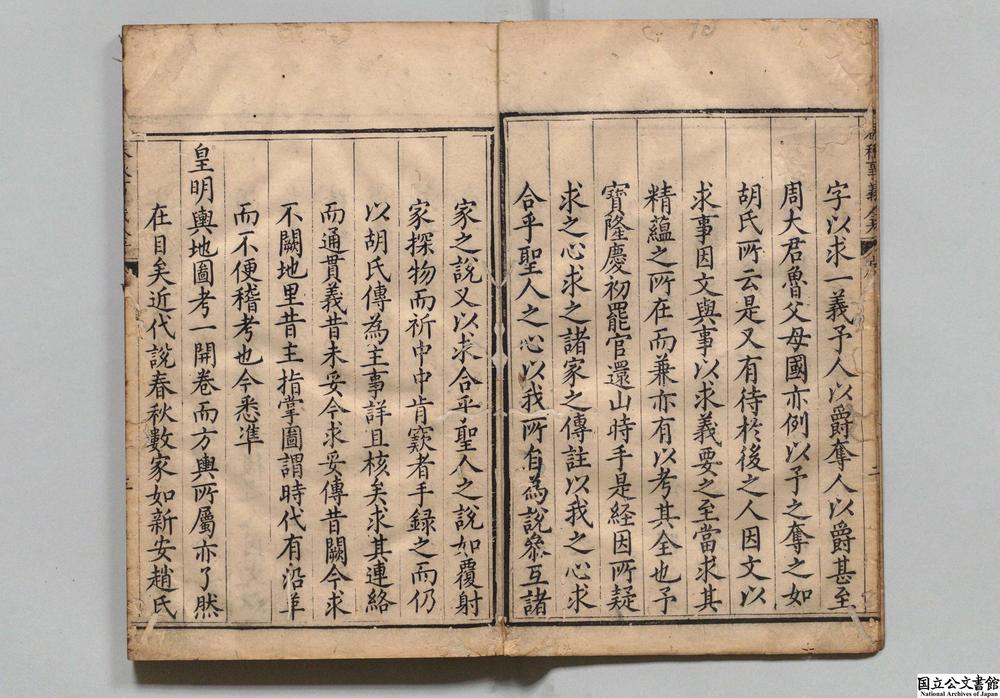 字以求一義予人以爵奪人以爵甚至
周大君魯父母國亦例以予之奪之如
胡氏所云是又有待於後之人因文以
求事因文與事以求義要之至當求其
精蘊之所在而兼亦有以考其全也予
寶隆慶初罷官還山時手是経因所疑
求之心求之諸家之傳註以我之心求
合乎聖人之心以我所自為說叅互諸
家之說又以求合乎聖人之說如覆射
家探物而祈中中肯窾者手録之而仍
以胡氏傳為主事詳且核矣求其連絡
而通貫義昔未妥今求妥傳昔闕今求
不闕地里昔主指掌圖謂時代有沿革
而不便稽考也今悉準
皇明輿地圖考一開卷而方輿所屬亦了然
在目矣近代說春秋數家如新安趙氏
国立公文書館
National Archives of Japan